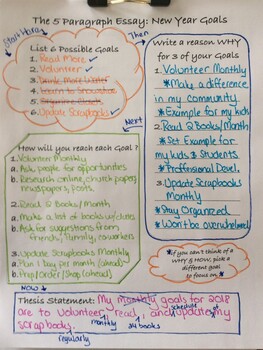 The 5 Paragraph Essay: New Year Goals
Start Here
List 6 Possible Goals
1. Read More ✓
2. Volunteer ✓
3. Drink More Water
4. Learn to Snowshoe
5. Organize
6. Update Scrapbooks ✓
Then
Write a reason WHY
for 3 of your Goals
1. Volunteer Monthly
*Make a difference
in my community.
*Example for my kids
2. Read 2 Books/Month
*Set Example for
my kids & Students
*Proffesional Devel.
3. Update Scrapbooks
Monthly
*Stay Organized
*Won't be overwhelmed
Next
How will you reach each Goal?
1. Volunteer Monthly
a. Ask people for opportunities
b. Research online, church paper,
newspapers, posts.
2. Read 2 Books/month
a. Make a list of books w/dates
b. Ask for suggestions from
friends, family, coworkers
3. Update Scrapbooks Monthly
a. Plan 1 day per month (ahead)
b. Prep/Order/Shop (ahead)
*If you can't think of
a WHY & HOW, pick a
different goal
to focus on.*
NOW
Thesis Statement: My monthly goals for 2018
are to volunteer, read and schedule updating my
scrapbooks. monthly 24 books
regularly